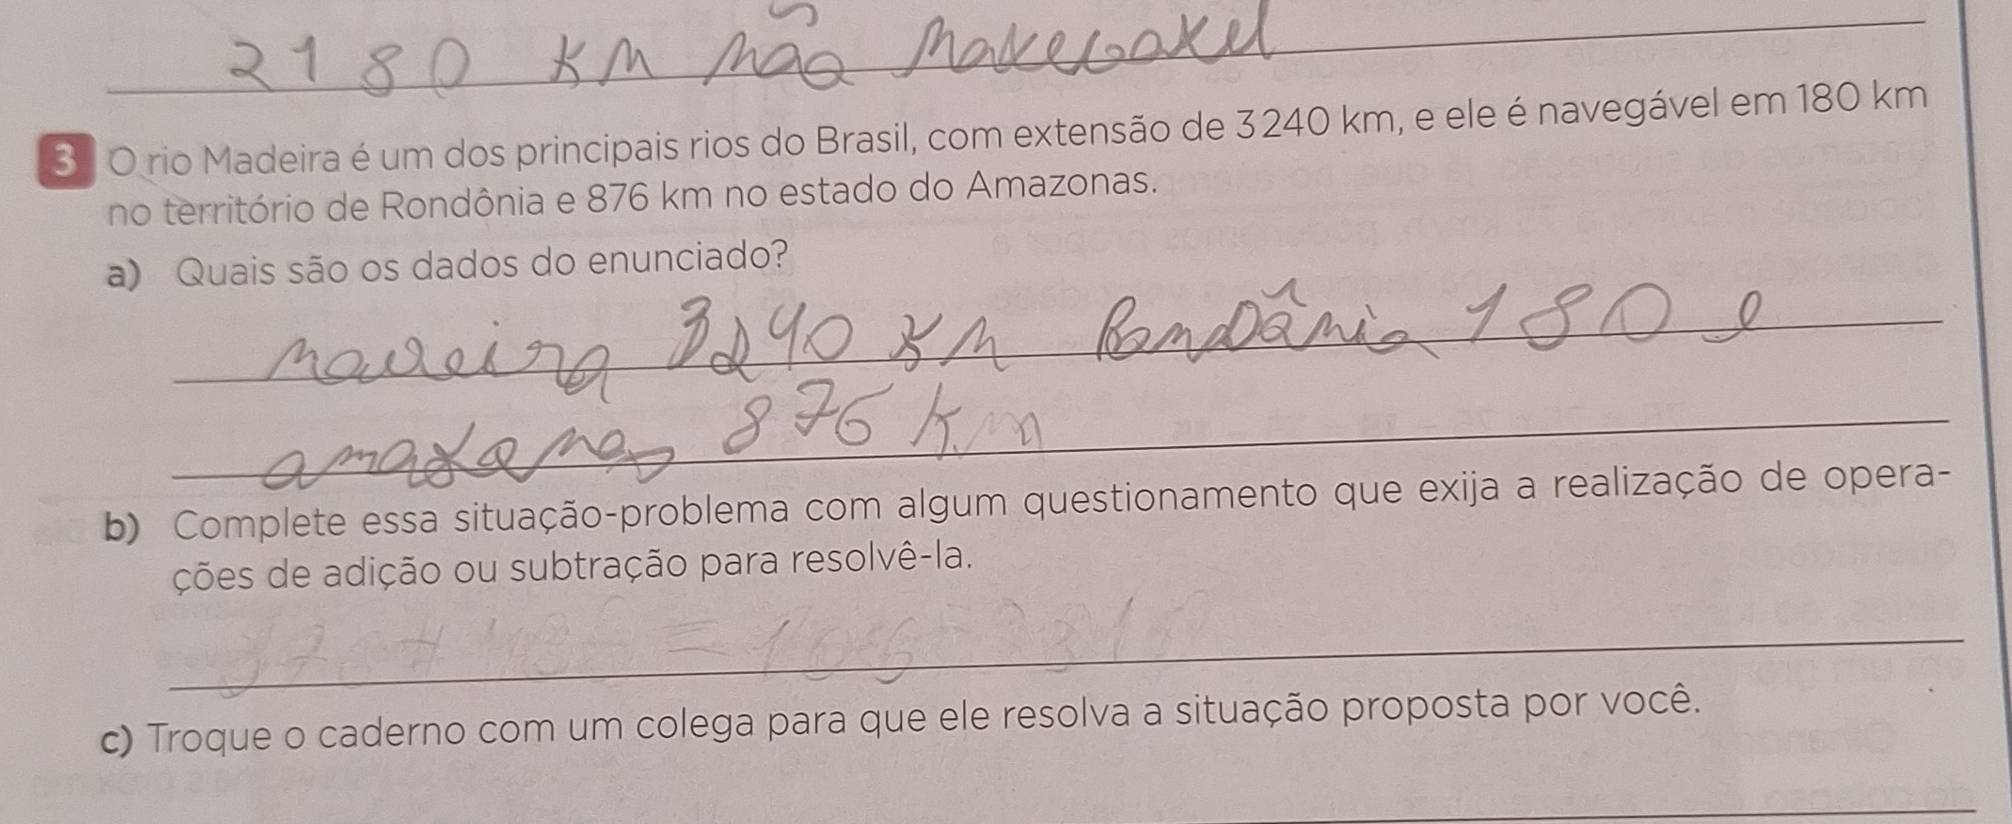 2180 KM não
3 O rio Madeira é um dos principais rios do Brasil, com extensão de 3 240 km, e ele é navegável em 180 km
no território de Rondônia e 876 km no estado do Amazonas.
a) Quais são os dados do enunciado?
3240 KM Rondônia 180 e
amazonas 876 Km
b) Complete essa situação-problema com algum questionamento que exija a realização de opera-
ções de adição ou subtração para resolvê-la.
c) Troque o caderno com um colega para que ele resolva a situação proposta por você.